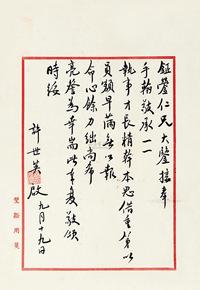 鑑瑩仁兄大鑒接奉
手翰敬承一一
執事才長精幹本思借重第以
員額早滿無以報
命心餘力絀尚希
亮詧為幸耑此奉复敬頌
時綏
許世英啟九月十九日
雙谿用箋